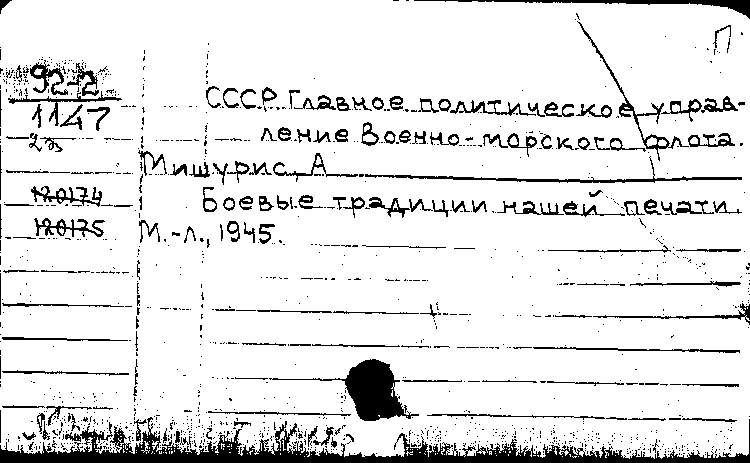 П
92-2
1147
2э
СССР. Главное политическое управ-
ление Военно-морского флота.
Мишурис, А
Боевые традиции нашей печати.
М.-л., 1945.
120174
120175